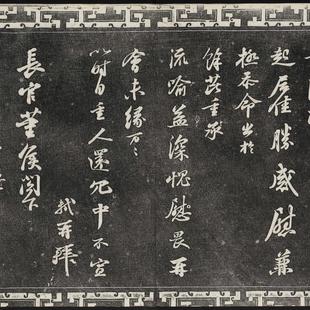 起居佳勝感慰兼
極忝命出於
餘芘重承
流喻益深愧慰畏再
會未緣万〻
以時自重人還冗中不宣
軾再拜
長官董侯閣下